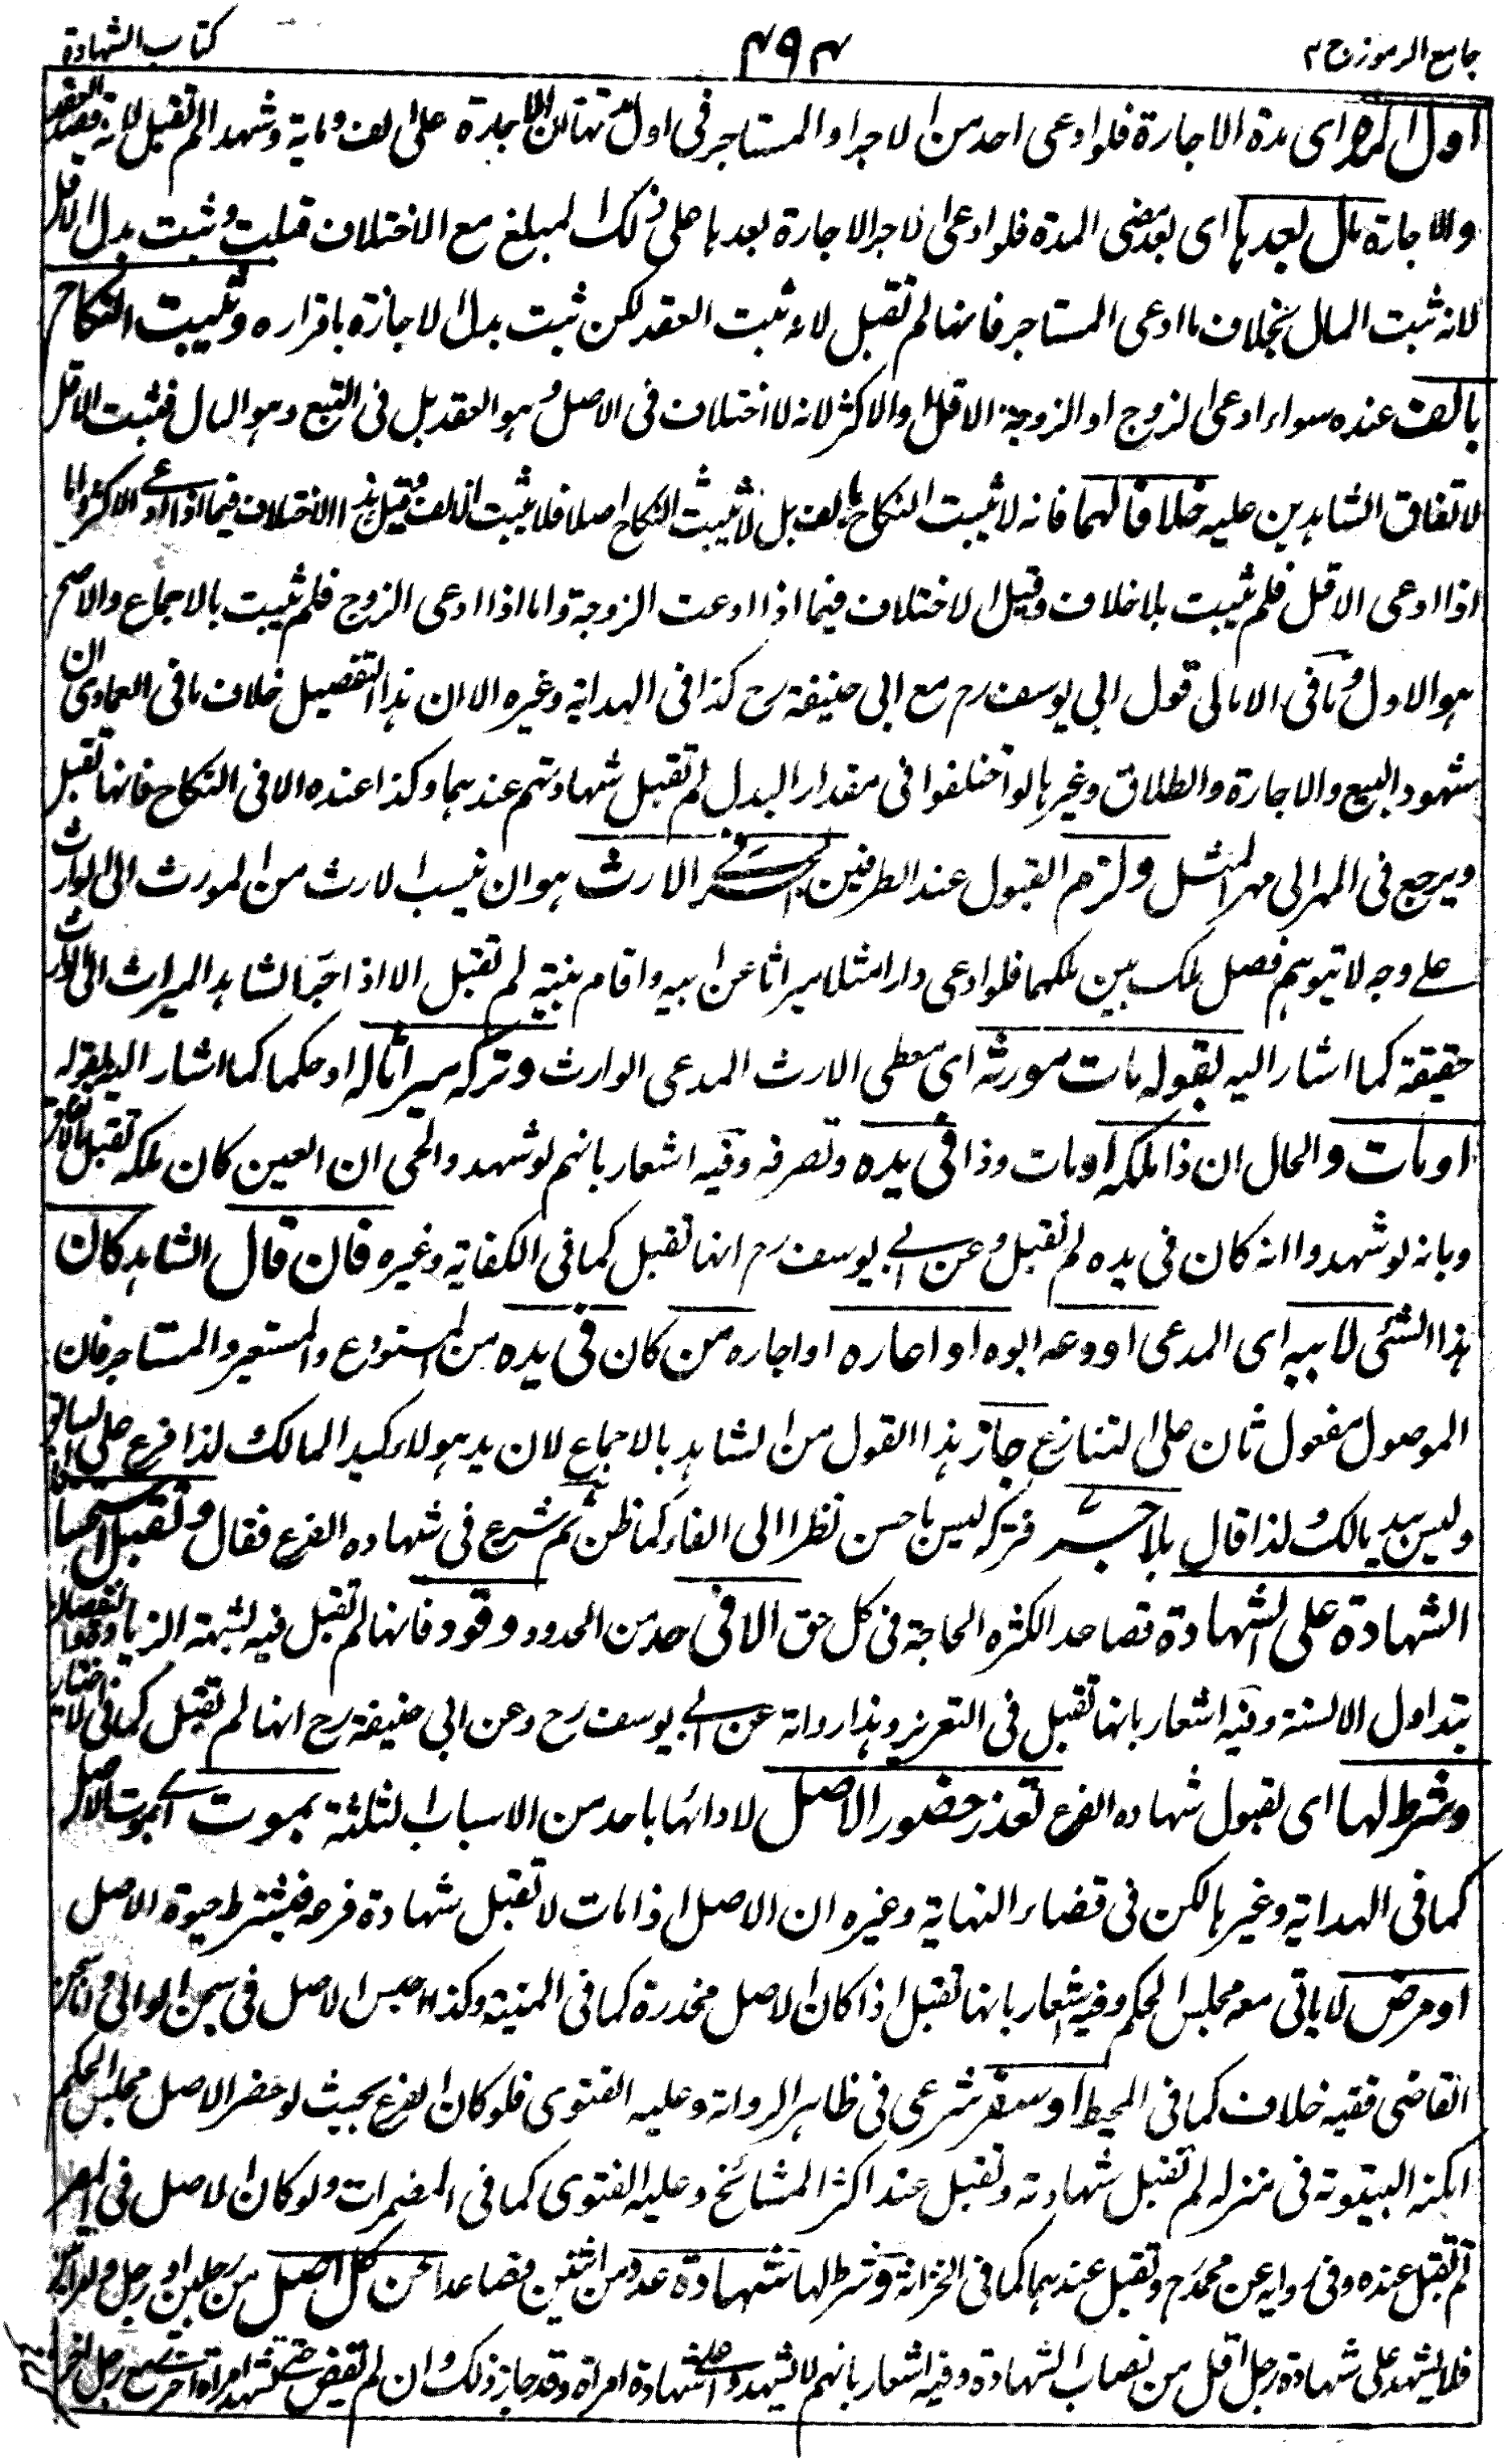 جامع الرموز ج ٢
٤٩٤
كتاب الشهادة
اول المدة اى مدة الاجارة فلو ادعى احد من الاجر او المستاجر فى اول مدتها ان الاجارة على الف و ماية وشهدا لم تقبل لانه قصد العقد
والاجارة مال بعدها اى بعد مضى المدة فلو ادعى الاجر الاجارة بعدها على ذلك المبلغ مع الاختلاف قبلت وثبت بدل الاقل
لانه ثبت المال بخلاف ما ادعى المستاجر فانها لم تقبل لانه ثبت العقد لكن ثبت بدل الاجازة باقراره ويثبت النكاح
بالف عنده سواء ادعى الزوج او الزوجة الاقل والاكثر لانه لا اختلاف فى الاصل وهو العقد بل فى التبع وهو المال فثبت الاقل
لاتفاق الشاهدين عليه خلافا لهما فانه لا يثبت النكاح بالف بل لا يثبت النكاح اصلا فلا يثبت الالف وقيل هذا الاختلاف فيما اذا ادعى الاكثر واما
اذا ادعى الاقل فلم يثبت بلا خلاف وقيل الاختلاف فيما اذا ادعت الزوجة واما اذا ادعى الزوج فلم يثبت بالاجماع والاصح
هو الاول وما فى الامالى قول ابى يوسف رح مع ابى حنيفة رح كذا فى الهداية وغيره الا ان هذا التفصيل خلاف ما فى العمادى ان
شهود البيع والاجارة والطلاق وغيرها لو اختلفوا فى مقدار البدل لم تقبل شهادتهم عندهما وكذا عنده الا فى النكاح فانها تقبل
ويرجع فى المهر الى مهر المثل ولزم القبول عند الطرفين الجر فى الارث هو ان ينسب الارث من المورث الى الوارث
على وجه لا يتوهم فصل ملك بين ملكهما فلو ادعى دارا مثلا ميراثا عن ابيه واقام بينة لم تقبل الا اذا اخبر الشاهد الميراث الى الوارث
حقيقة كما اشار اليه بقوله مات مورثه اى معطى الارث المدعى الوارث وتركه ميراثا له او حكما كما اشار اليه بقوله
او مات والحال ان ذا ملكه او مات وذا فى يده وتصرفه وفيه اشعار بانهم لو شهدوا لحى ان العين كان ملكه تقبل بالاتفاق
وبانه لو شهدوا انه كان فى يده لم تقبل وعن ابى يوسف رح انها تقبل كما فى الكفاية وغيره فان قال الشاهد كان
هذا الشئى لابيه اى المدعى اودعه ابوه او اعاره او اجاره من كان فى يده من المستودع والمستعير والمستاجر فان
الموصول مفعول ثان على التنازع جاز هذا القول من الشاهد بالاجماع لان يد هولاء كيد المالك لذا فرع على
وليس بيد مالك لذا قال بلا جر فتركه ليس باحسن نظرا الى الفاء كما ظن ثم شرع فى شهاده الفرع فقال وتقبل استحسانا
الشهادة على الشهادة فصاعدا لكثره الحاجة فى كل حق الا فى حد من الحدود وقود فانها لم تقبل فيه لشبهة الزيادة والنقصان
بتداول الالسنة وفيه اشعار بانها تقبل فى التعزير وهذا رواية عن ابى يوسف رح وعن ابى حنيفة رح انها لم تقبل كما فى الاختيار
وشرط لها اى لقبول شهاده الفرع تعذر حضور الاصل لادائها باحد من الاسباب الثلثة بموت اى بموت الاصل
كما فى الهداية وغيرها لكن فى قضاء النهاية وغيره ان الاصل اذا مات لا تقبل شهادة فرعه فيشترط حيوة الاصل
او مرض لا ياتى معه مجلس الحكم وفيه اشعار بانها تقبل اذا كان الاصل مخدرة كما فى المنية وكذا حبس الاصل فى سجن الوالى واما سجن
القاضى ففيه خلاف كما فى المحيط او سفر شرعى فى ظاهر الرواية وعليه الفتوى فلو كان الفرع بحيث لو حضر الاصل مجلس الحكم
امكنه البيتوتة فى منزله لم تقبل شهادته وتقبل عند اكثر المشائخ وعليه الفتوى كما فى المضمرات ولو كان الاصل فى المصر
لم تقبل عنده وفى روايه عن محمد رح وتقبل عندهما كما فى الخزانة وشرط لها شهادة عدد من اثنين فصاعدا عن كل اصل من رجلين او رجل وامراتين
فلا يشهد على شهادة رجل اقل من نصاب الشهادة وفيه اشعار بانهم لا يشهدوا على شهادة امراة وقد جاز ذلك وان لم تقبض حتى تشهد امراة اخرى مع رجل اخر